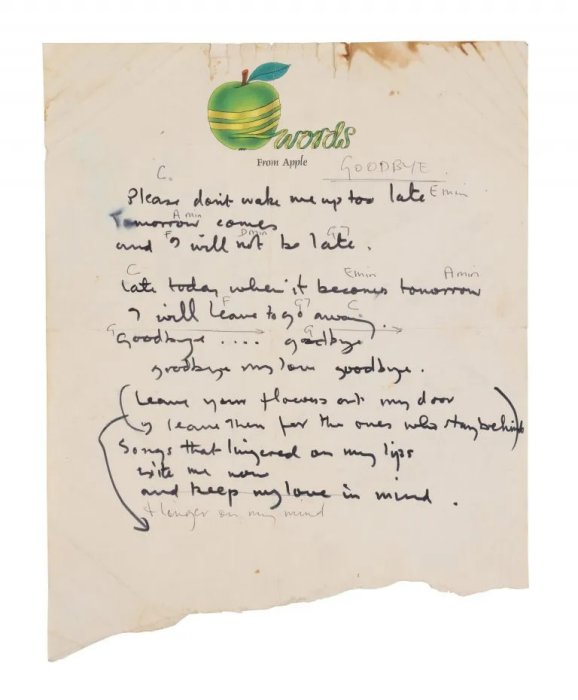 words
From Apple
GOODBYE
C.
Please don't wake me up too late Emin
Amin
Tomorrow comes
F Dmin G7
and I will not be late.
C Emin Amin
Late today when it becomes tomorrow
F G7 C
I will leave to go away.
G G
Goodbye .... goodbye
goodbye my love goodbye.
(Leave your flowers at my door
I leave them for the ones who stay behind)
Songs that lingered on my lips
me now
and keep my love in mind.
& linger on my mind